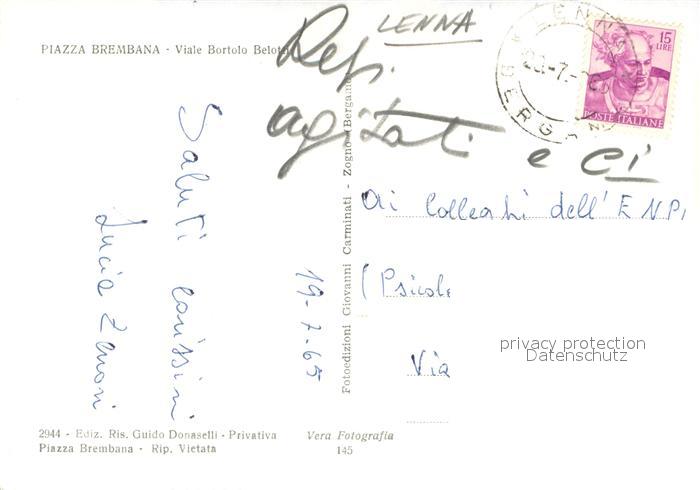 LENNA
PIAZZA BREMBANA - Viale Bortolo Belotti
15
LIRE
POSTE ITALIANE
LENNA
BERGAMO
agitati
e Ci
Saluti carissimi
Lucia Zanoni
19-7-65
Fotoedizioni Giovanni Carminati - Zogno (Bergamo)
Ai Colleghi dell'ENPI
(Psicolo
Via
privacy protection
Datenschutz
2944 - Ediz. Ris. Guido Donaselli - Privativa
Piazza Brembana - Rip. Vietata
Vera Fotografia
145